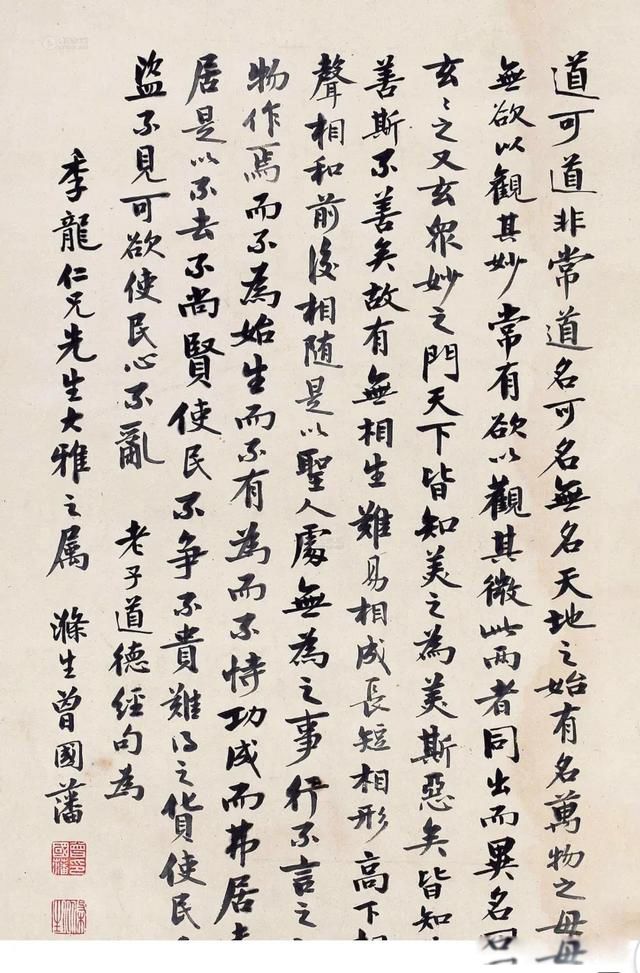 道可道非常道名可名無名天地之始有名萬物之母
無欲以觀其妙常有欲以觀其微此兩者同出而異名同
玄〻之又玄眾妙之門天下皆知美之為美斯惡矣皆知
善斯不善矣故有無相生難易相成長短相形高下相
聲相和前後相随是以聖人處無為之事行不言之
物作焉而不為始生而不有為而不恃功成而弗居
居是以不去不尚賢使民不争不貴難得之貨使民
盜不見可欲使民心不亂 老子道德經句為
季龍仁兄先生大雅之属 滌生曾國藩